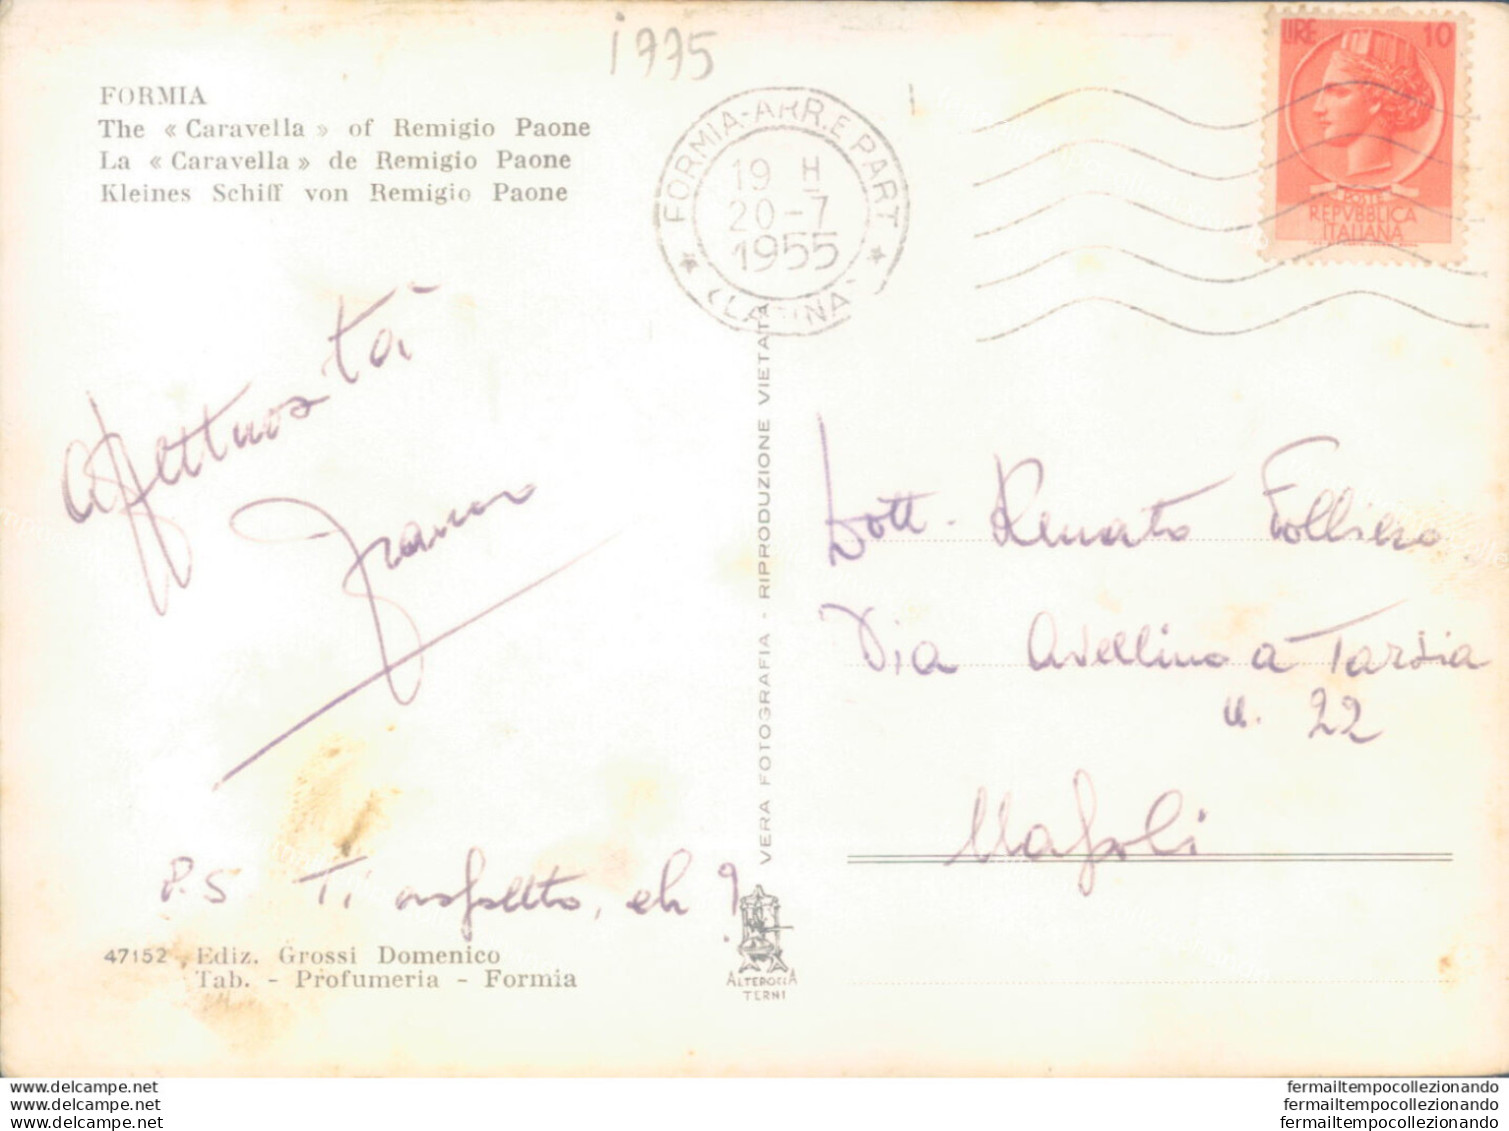 1775
FORMIA
The « Caravella » of Remigio Paone
La « Caravella » de Remigio Paone
Kleines Schiff von Remigio Paone
FORMIA-ARR.E PART
19 H
20-7
1955
LATINA
LIRE 10
POSTE
REPVBBLICA
ITALIANA
Affettuosità
Franco
P.S Ti aspetto, eh?
47152 Ediz. Grossi Domenico
Tab. - Profumeria - Formia
VERA FOTOGRAFIA - RIPRODUZIONE VIETATA
ALTEROCCA
TERNI
Dott. Renato Folliero
Via Avellino a Tarsia
n. 22
Napoli
www.delcampe.net
www.delcampe.net
www.delcampe.net
fermailtempocollezionando
fermailtempocollezionando
fermailtempocollezionando